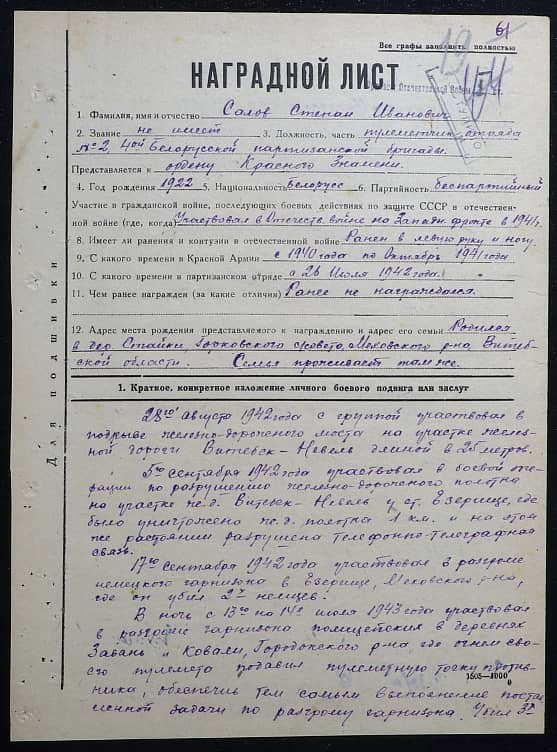 61
Все графы заполнить полностью
НАГРАДНОЙ ЛИСТ
Отечественной Войны
1. Фамилия, имя и отчество Салов Степан Иванович
2. Звание не имеет 3. Должность, часть пулеметчик отряда
№2, 4ой Белорусской партизанской бригады.
Представляется к ордену Красного Знамени.
4. Год рождения 1922 5. Национальность Белорусс 6. Партийность беспартийный
Участие в гражданской войне, последующих боевых действиях по защите СССР и отечествен-
ной войне (где, когда) Участвовал в Отечеств. войне на Западн. фронте в 1941г.
8. Имеет ли ранения и контузии в отечественной войне Ранен в левую руку и ногу.
9. С какого времени в Красной Армии с 1940 года по Октябрь 1941 года
10. С какого времени в партизанском отряде с 26 Июля 1942 года.
11. Чем ранее награжден (за какие отличия) Ранее не награждался.
12. Адрес места рождения представляемого к награждению и адрес его семьи Родился
в дер. Стайки, с/совета, Меховского р-на Витеб-
ской области. Семья проживает там же.
Для подшивки
1. Краткое, конкретное изложение личного боевого подвига или заслуг
28го Августа 1942 года с группой участвовал в
подрыве железно-дорожного моста на участке желез-
ной дороги Витебск-Невель длиной в 25 метров.
5го Сентября 1942 года участвовал в боевой опе-
рации по разрушению железно-дорожного полотна
на участке ж.д. Витебск-Невель у ст. Езерище, где
было уничтожено ж.д. полотна 1 км. и на этом
же растоянии разрушена телефонно-телеграфная
связь.
17го Сентября 1942 года участвовал в разгроме
немецкого гарнизона в Езерище, Меховского р-на,
где он убил 2х немцев.
В ночь с 13го на 14е июля 1943 года участвовал
в разгроме гарнизона полицейских в деревнях
Завань и Ковали, Городокского р-на, где огнем сво-
его пулемета подавил пулеметную точку против-
ника, обеспечив тем самым выполнение постав-
1505-4000
ленной задачи по разгрому гарнизона. Убил 3х